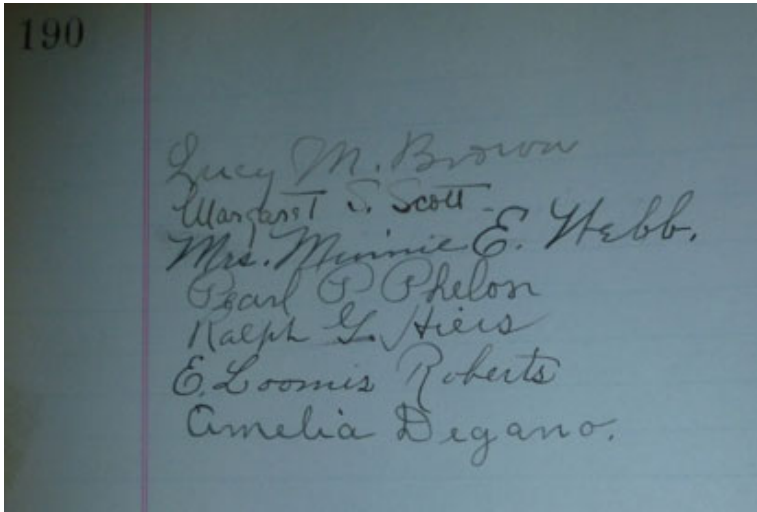 190
Lucy M. Brown
Margaret S. Scott
Mrs. Minnie E. Webb.
Pearl P Phelon
Ralph G. Hiers
E. Loomis Roberts
Amelia Degano.